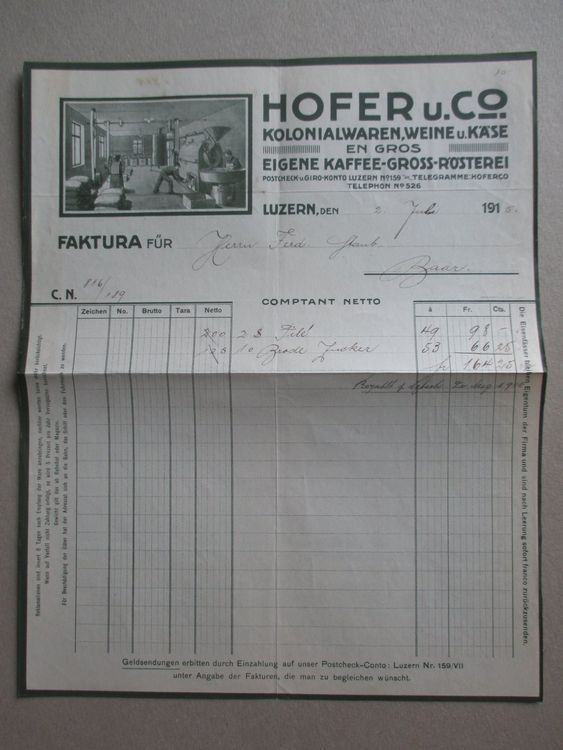 HOFER u. Co.
KOLONIALWAREN, WEINE u. KÄSE
EN GROS
EIGENE KAFFEE-GROSS-RÖSTEREI
POSTCHECK- u. GIRO-KONTO LUZERN No 159 TELEGRAMME: HOFERCO
TELEPHON No 526
LUZERN, DEN 2. Juli 1915.
FAKTURA FÜR Herrn Ferd. Staub.
Baar.
C. N. 116/189
COMPTANT NETTO
Zeichen No. Brutto Tara Netto à Fr. Cts.
200 2 S 49 98 -
125 10 Brode Zucker 53 66 25
164 25
Reklamationen sind innert 8 Tagen nach Empfang der Ware anzubringen, nachher werden keine mehr berücksichtigt.
Wenn auf Verfall nicht Zahlung erfolgt, so wird 5 Prozent pro Jahr Verzugszins berechnet.
Gewicht gilt das ab Bahnhof oder Magazin.
Für Beschädigung der Güter hat der Adressat sich an die Bahn, das Schiff oder den Fuhrmann zu wenden.
Die Eisenfässer bleiben Eigentum der Firma und sind nach Leerung sofort franco zurückzusenden.
Geldsendungen erbitten durch Einzahlung auf unser Postcheck-Conto: Luzern Nr. 159/VII
unter Angabe der Fakturen, die man zu begleichen wünscht.